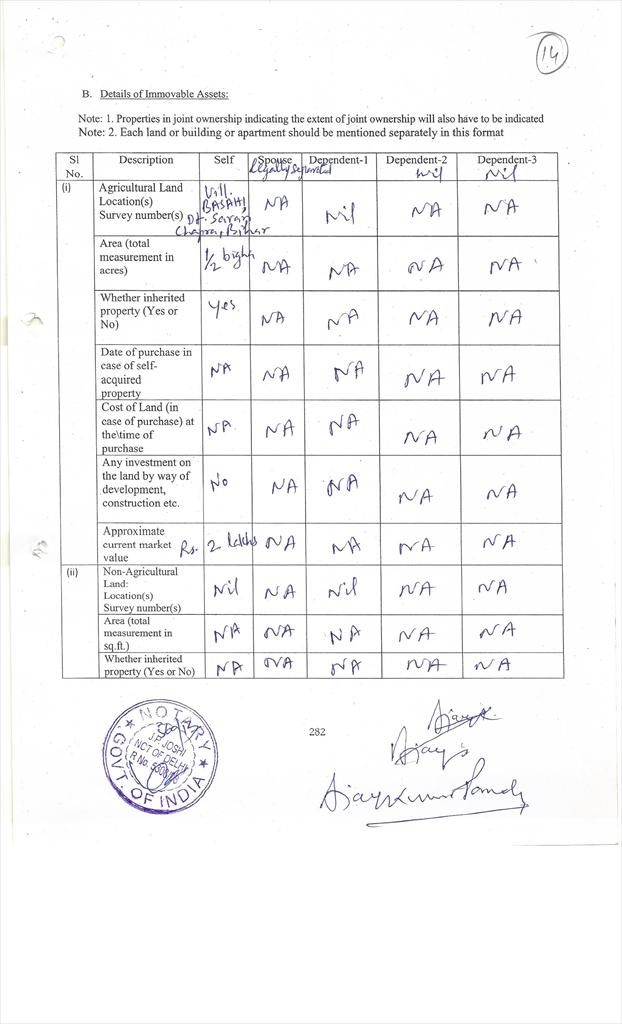 14
B. Details of Immovable Assets:
Note: 1. Properties in joint ownership indicating the extent of joint ownership will also have to be indicated
Note: 2. Each land or building or apartment should be mentioned separately in this format
Sl No. Description Self Spouse Dependent-1 Dependent-2 Dependent-3
legally separated Nil Nil
(i) Agricultural Land Vill.
Location(s) BASAHI, NA Nil NA NA
Survey number(s) Dt. Saran
Chapra, Bihar
Area (total
measurement in 1/2 bigha NA NA NA NA
acres)
Whether inherited
property (Yes or yes NA NA NA NA
No)
Date of purchase in
case of self- NA NA NA NA NA
acquired
property
Cost of Land (in
case of purchase) at NA NA NA NA NA
the\time of
purchase
Any investment on
the land by way of No NA NA NA NA
development,
construction etc.
Approximate
current market Rs. 2 lakhs NA NA NA NA
value
(ii) Non-Agricultural
Land: Nil NA Nil NA NA
Location(s)
Survey number(s)
Area (total
measurement in NA NA NA NA NA
sq.ft.)
Whether inherited
property (Yes or No) NA NA NA NA NA
282
NOTARY
J.P. JOSHI
NCT OF DELHI
GOVT. OF INDIA
Ajay K.
Ajay
Ajay Kumar Pandey